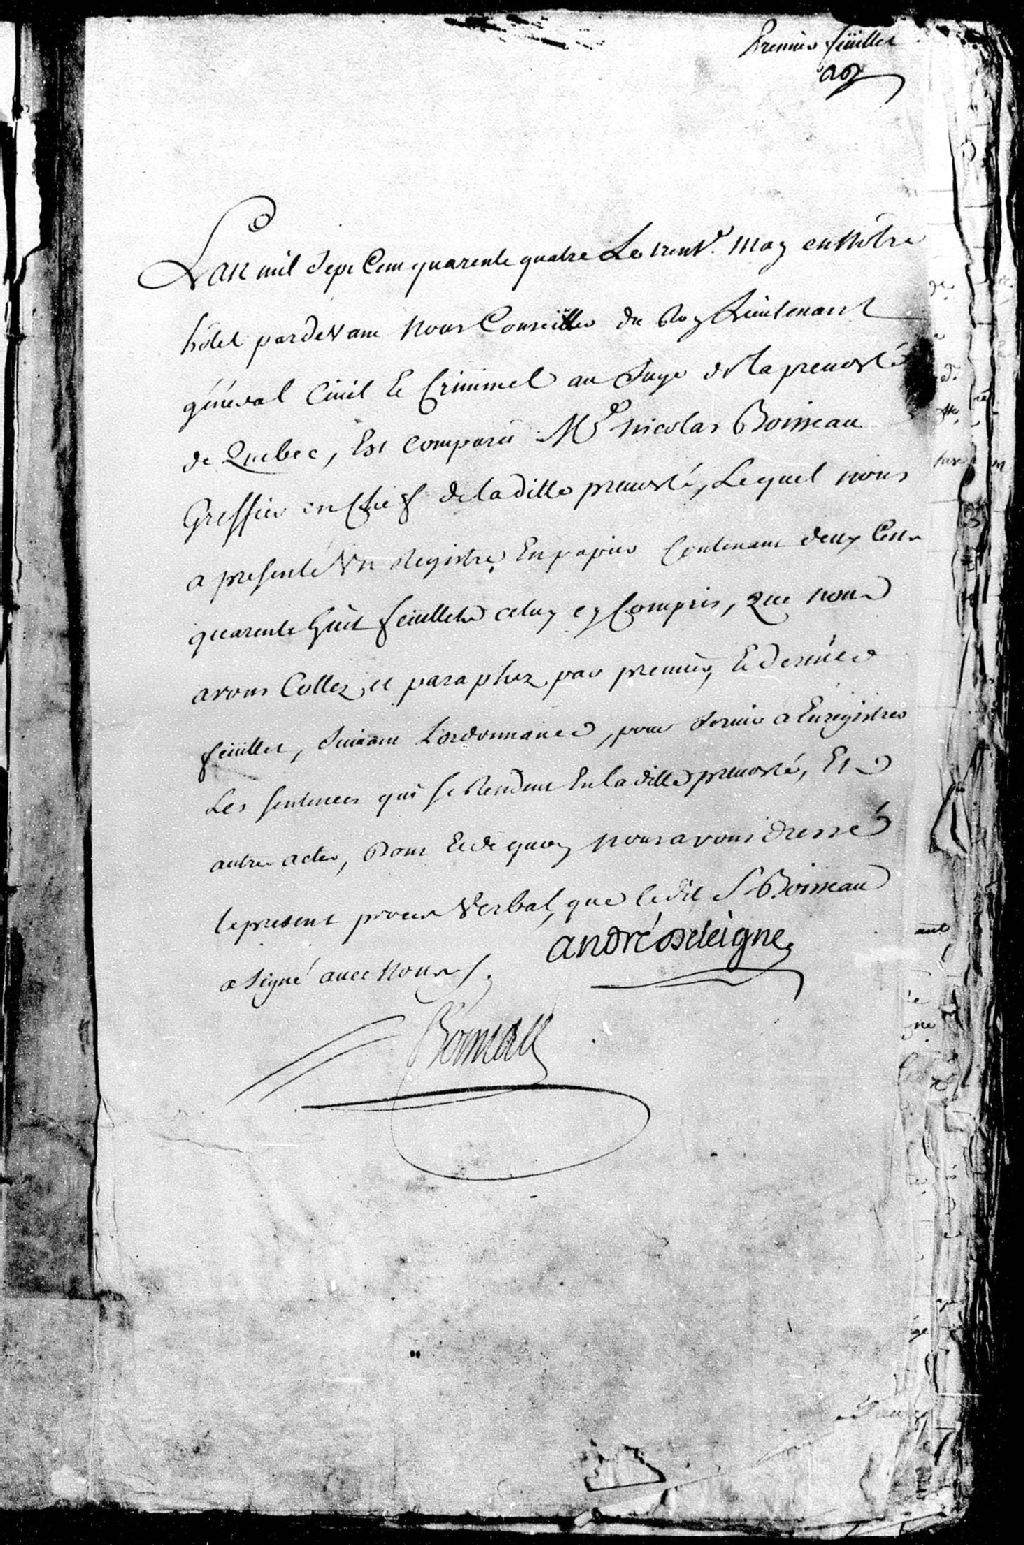 Premier feüillet
Lan mil Sept Cent quarente quatre Le trent.e May en Nôtre
hôtel pardevant Nous Conseiller du Roy Lieutenant
général Civil Et Criminel au Siege de la prevosté
de Quebec, Est comparu Me Nicolas Boisseau
Greffier en Chef de la ditte prevosté, Lequel nous
a presenté Un Registre En papier Contenant deux Cent
quarente huit feüillets celuy cy Compris, Que nous
avons Cottez, et paraphez par premier, Et dernier
feüillet, Suivant L'ordonnance, pour Servir a Enregistrer
Les Sentences qui se Rendent En la ditte prevosté, Et
autres actes, Dont Et de quoy Nous avons dressé
le present procès Verbal, que le dit Sr Boisseau
a Signé avec Nous /.
andré deleigne
Boisseau